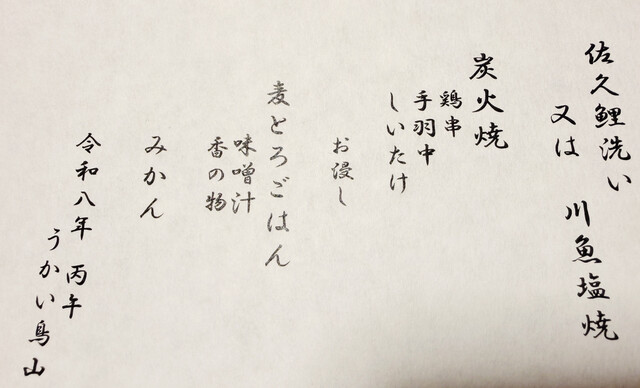 佐久鯉洗い
又は
川魚塩焼
炭火焼
鶏串
手羽中
しいたけ
お浸し
麦とろごはん
味噌汁
香の物
みかん
令和八年 丙午
うかい鳥山